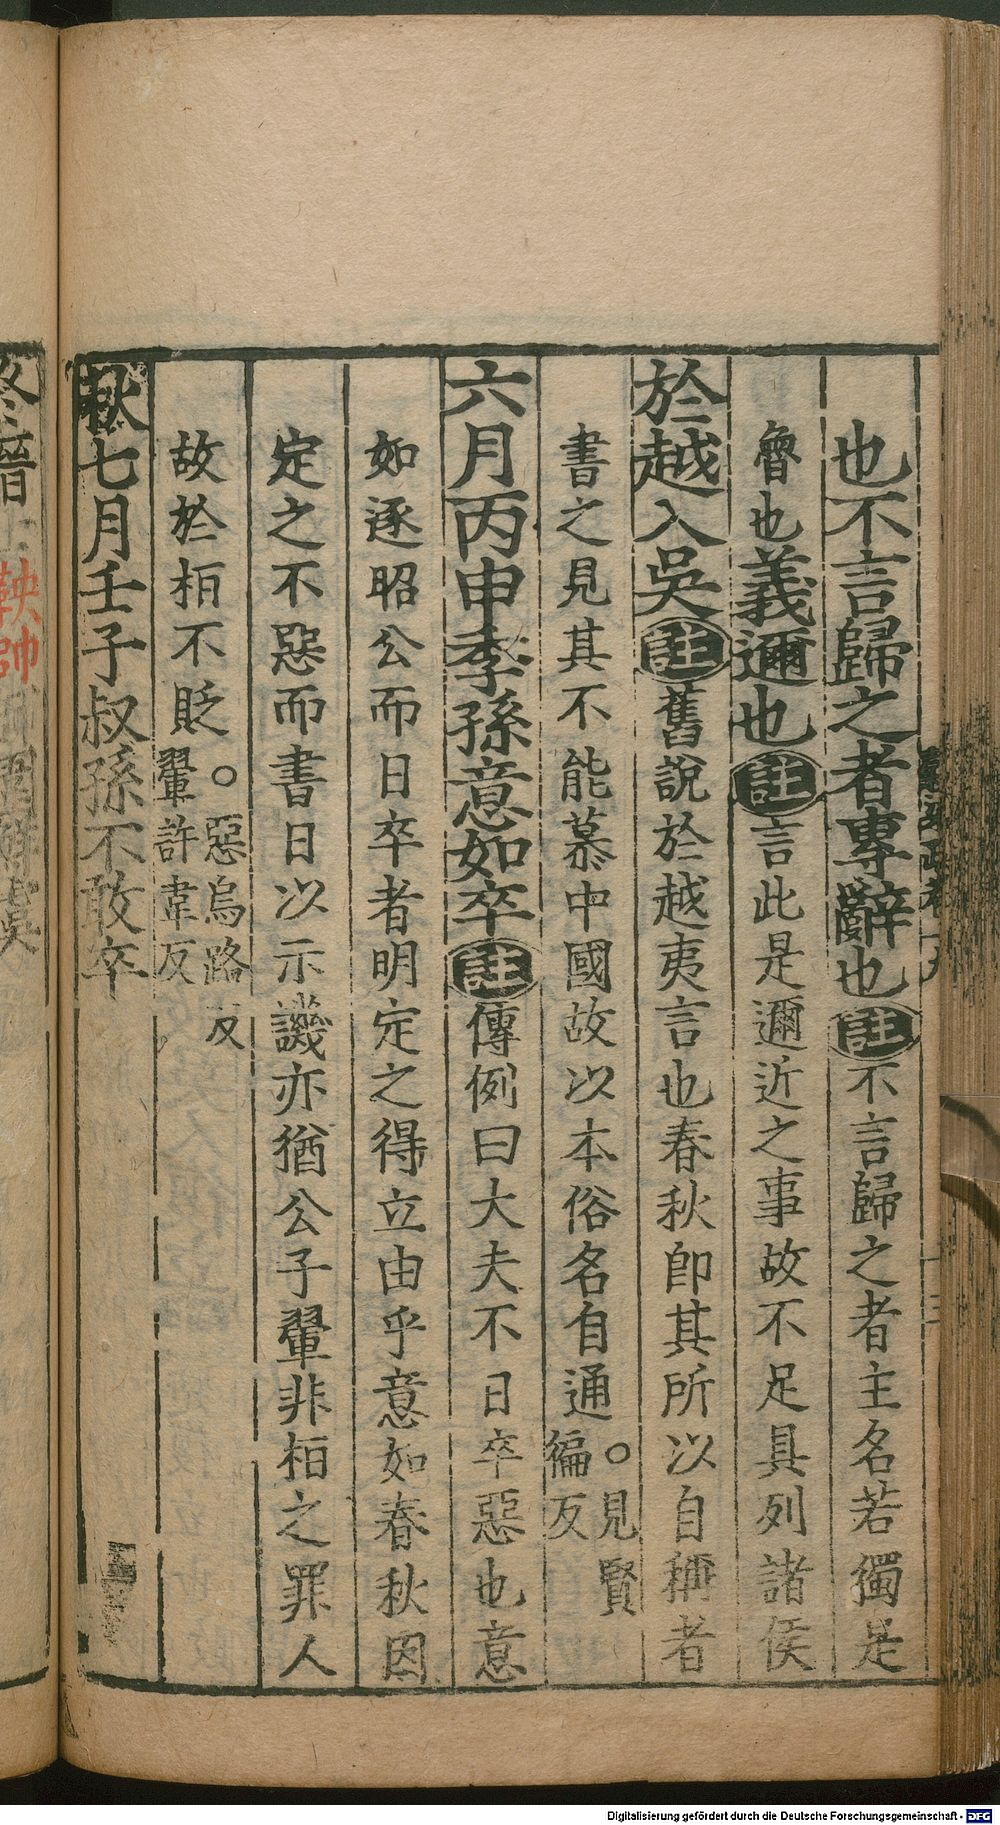 也不言歸之者專辭也註不言歸之者主名若獨是
魯也義邇也註言此是邇近之事故不足具列諸侯
於越入吳註舊說於越夷言也春秋即其所以自稱者
書之見其不能慕中國故以本俗名自通○見賢徧反
六月丙申季孫意如卒註傳例曰大夫不日卒惡也意
如逐昭公而日卒者明定之得立由乎意如春秋因
定之不惡而書日以示譏亦猶公子翬非柏之罪人
故於柏不貶○惡烏路反翬許韋反
秋七月壬子叔孫不敢卒
冬晉
鞅帥
Digitalisierung gefördert durch die Deutsche Forschungsgemeinschaft - DFG